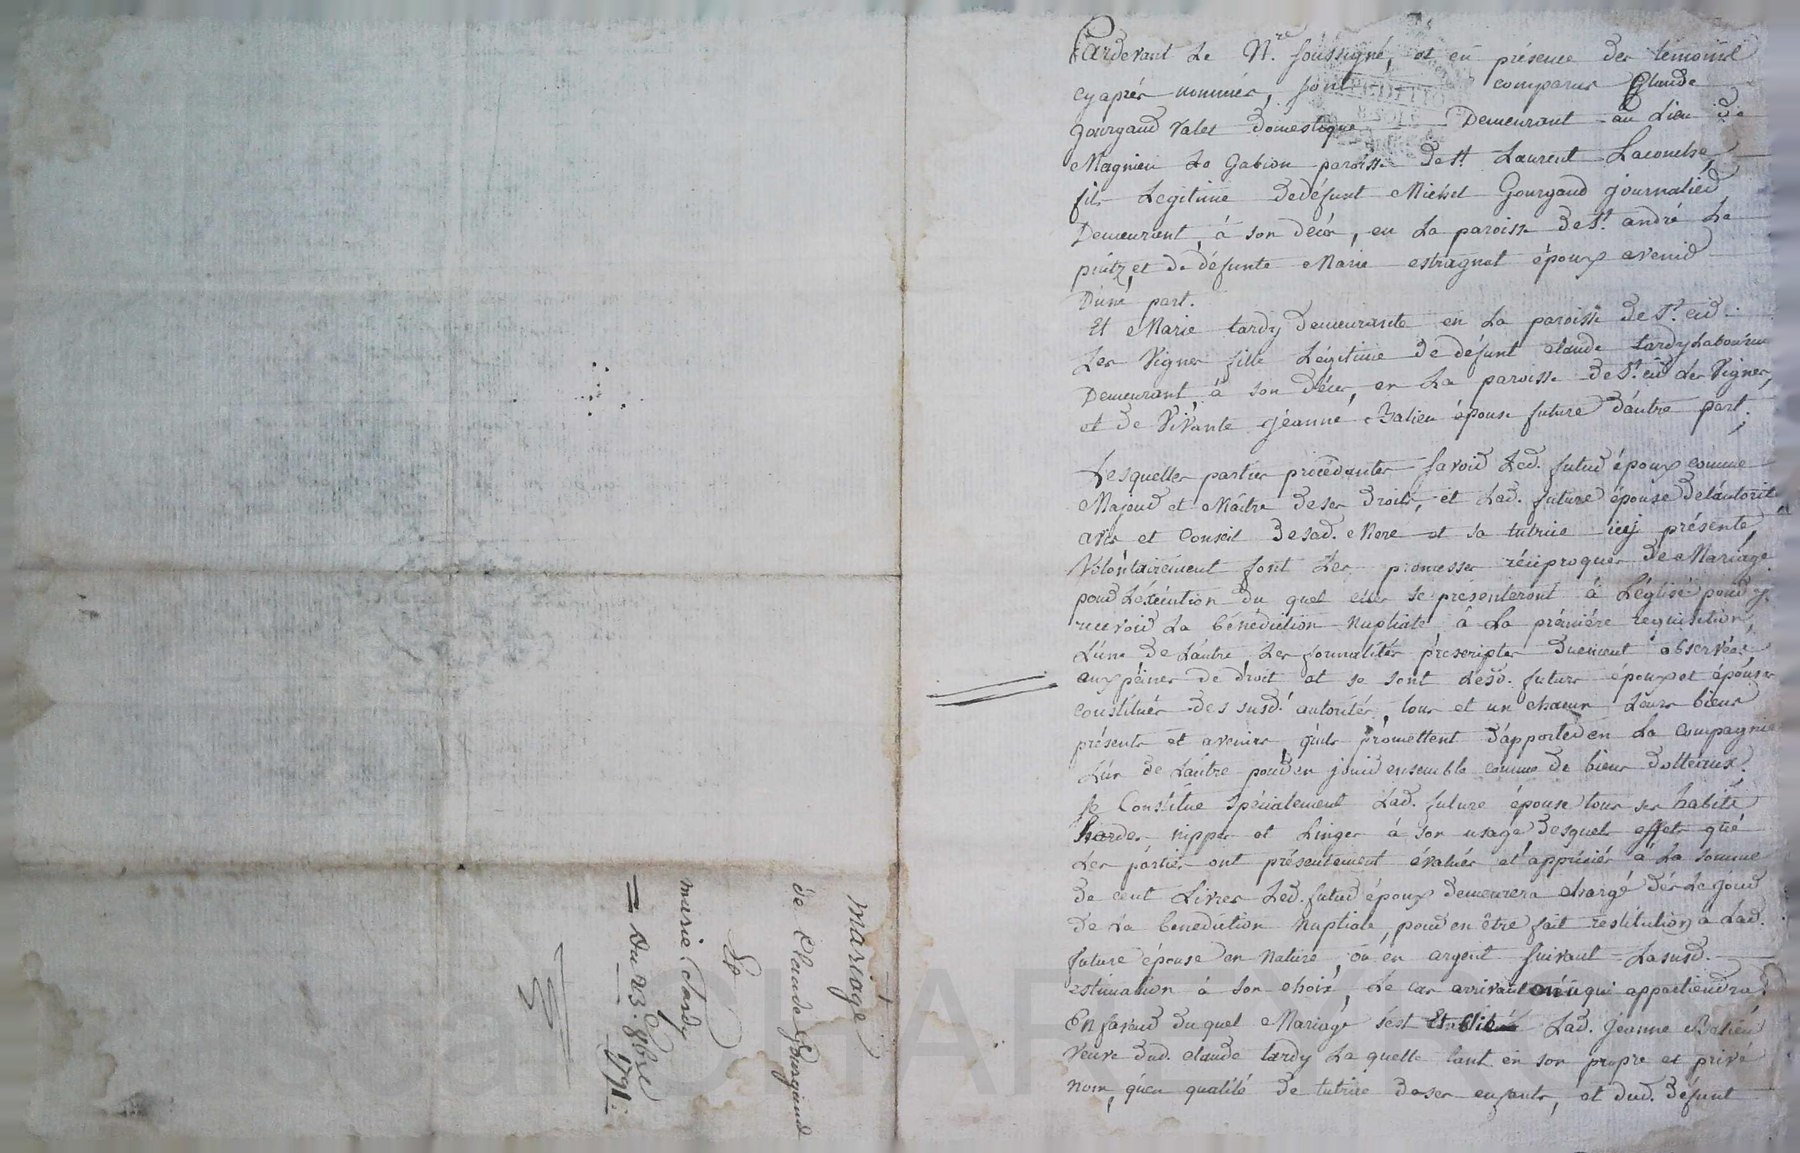 Pardevant Le N.re soussigné, et en présence des témoins
cyaprés nommés, sont comparus Claude
Gourgaud valet domestique Demeurant au Lieu de
Magnieu Le Gabion paroisse de St. Laurent Laconche,
fils Legitime de défunt Michel Gourgaud journalier
Demeurant, à son décès, en La paroisse de St. andré Le
puitz, et de défunte Marie estragnat époux avenir
D'une part.
Et Marie tardy demeurante en La paroisse de St. cir
Les Vignes fille Légitime de défunt claude tardy Laboureur
Demeurant, à son décès, en La paroisse de St. cir Les Vignes,
et de Vivante Jéanne Balieu épouse future d'autre part.
Lesquelles parties procédantes savoir Led. futur époux comme
Majeur et Maître de ses droits, et Lad. future épouse de L'autorité
avis et Conseil de sad. Mere et sa tutrice icy présente,
Volontairement font Les promesses réciproques de Mariage
pour L'exécution du quel elles se présenteront à L'église pour y
recevoir La bénédiction Nuptiale à La prémiére requisition,
L'une de L'autre Les formalités prescriptes duement observées
aux peines de droit et se sont Lesd. futurs époux et épouse
constitués des susd. autorités, tous et un chacun Leurs biens
présents et avenirs, qu'ils promettent d'apporter en La Compagnie
L'un de L'autre pour en jouir ensemble comme de biens dotteaux.
Se Constitue spécialement Lad. future épouse tous ses habits
hardes nippes et Linges à son usage desquels effets que
Les parties ont présentement évalués et appréciés à La somme
de cent Livres Led. futur époux demeurera chargé dés Le jour
de La bénédiction Nuptiale, pour en être fait restitution à Lad.
future épouse en Nature, ou en argent suivant La susd.
estimation à son choix, Le cas arrivant ou à qui appartiendra.
En faveur du quel Mariage s'est établie Lad. Jeanne Balieu
Veuve dud. claude tardy La quelle tant en son propre et privé
nom, qu'en qualité de tutrice de ses enfants, et dud. défunt
Mariage
de Claude Gourgaud
Et
marie Tardy
Du 23. 8bre
1791.
CHARTX